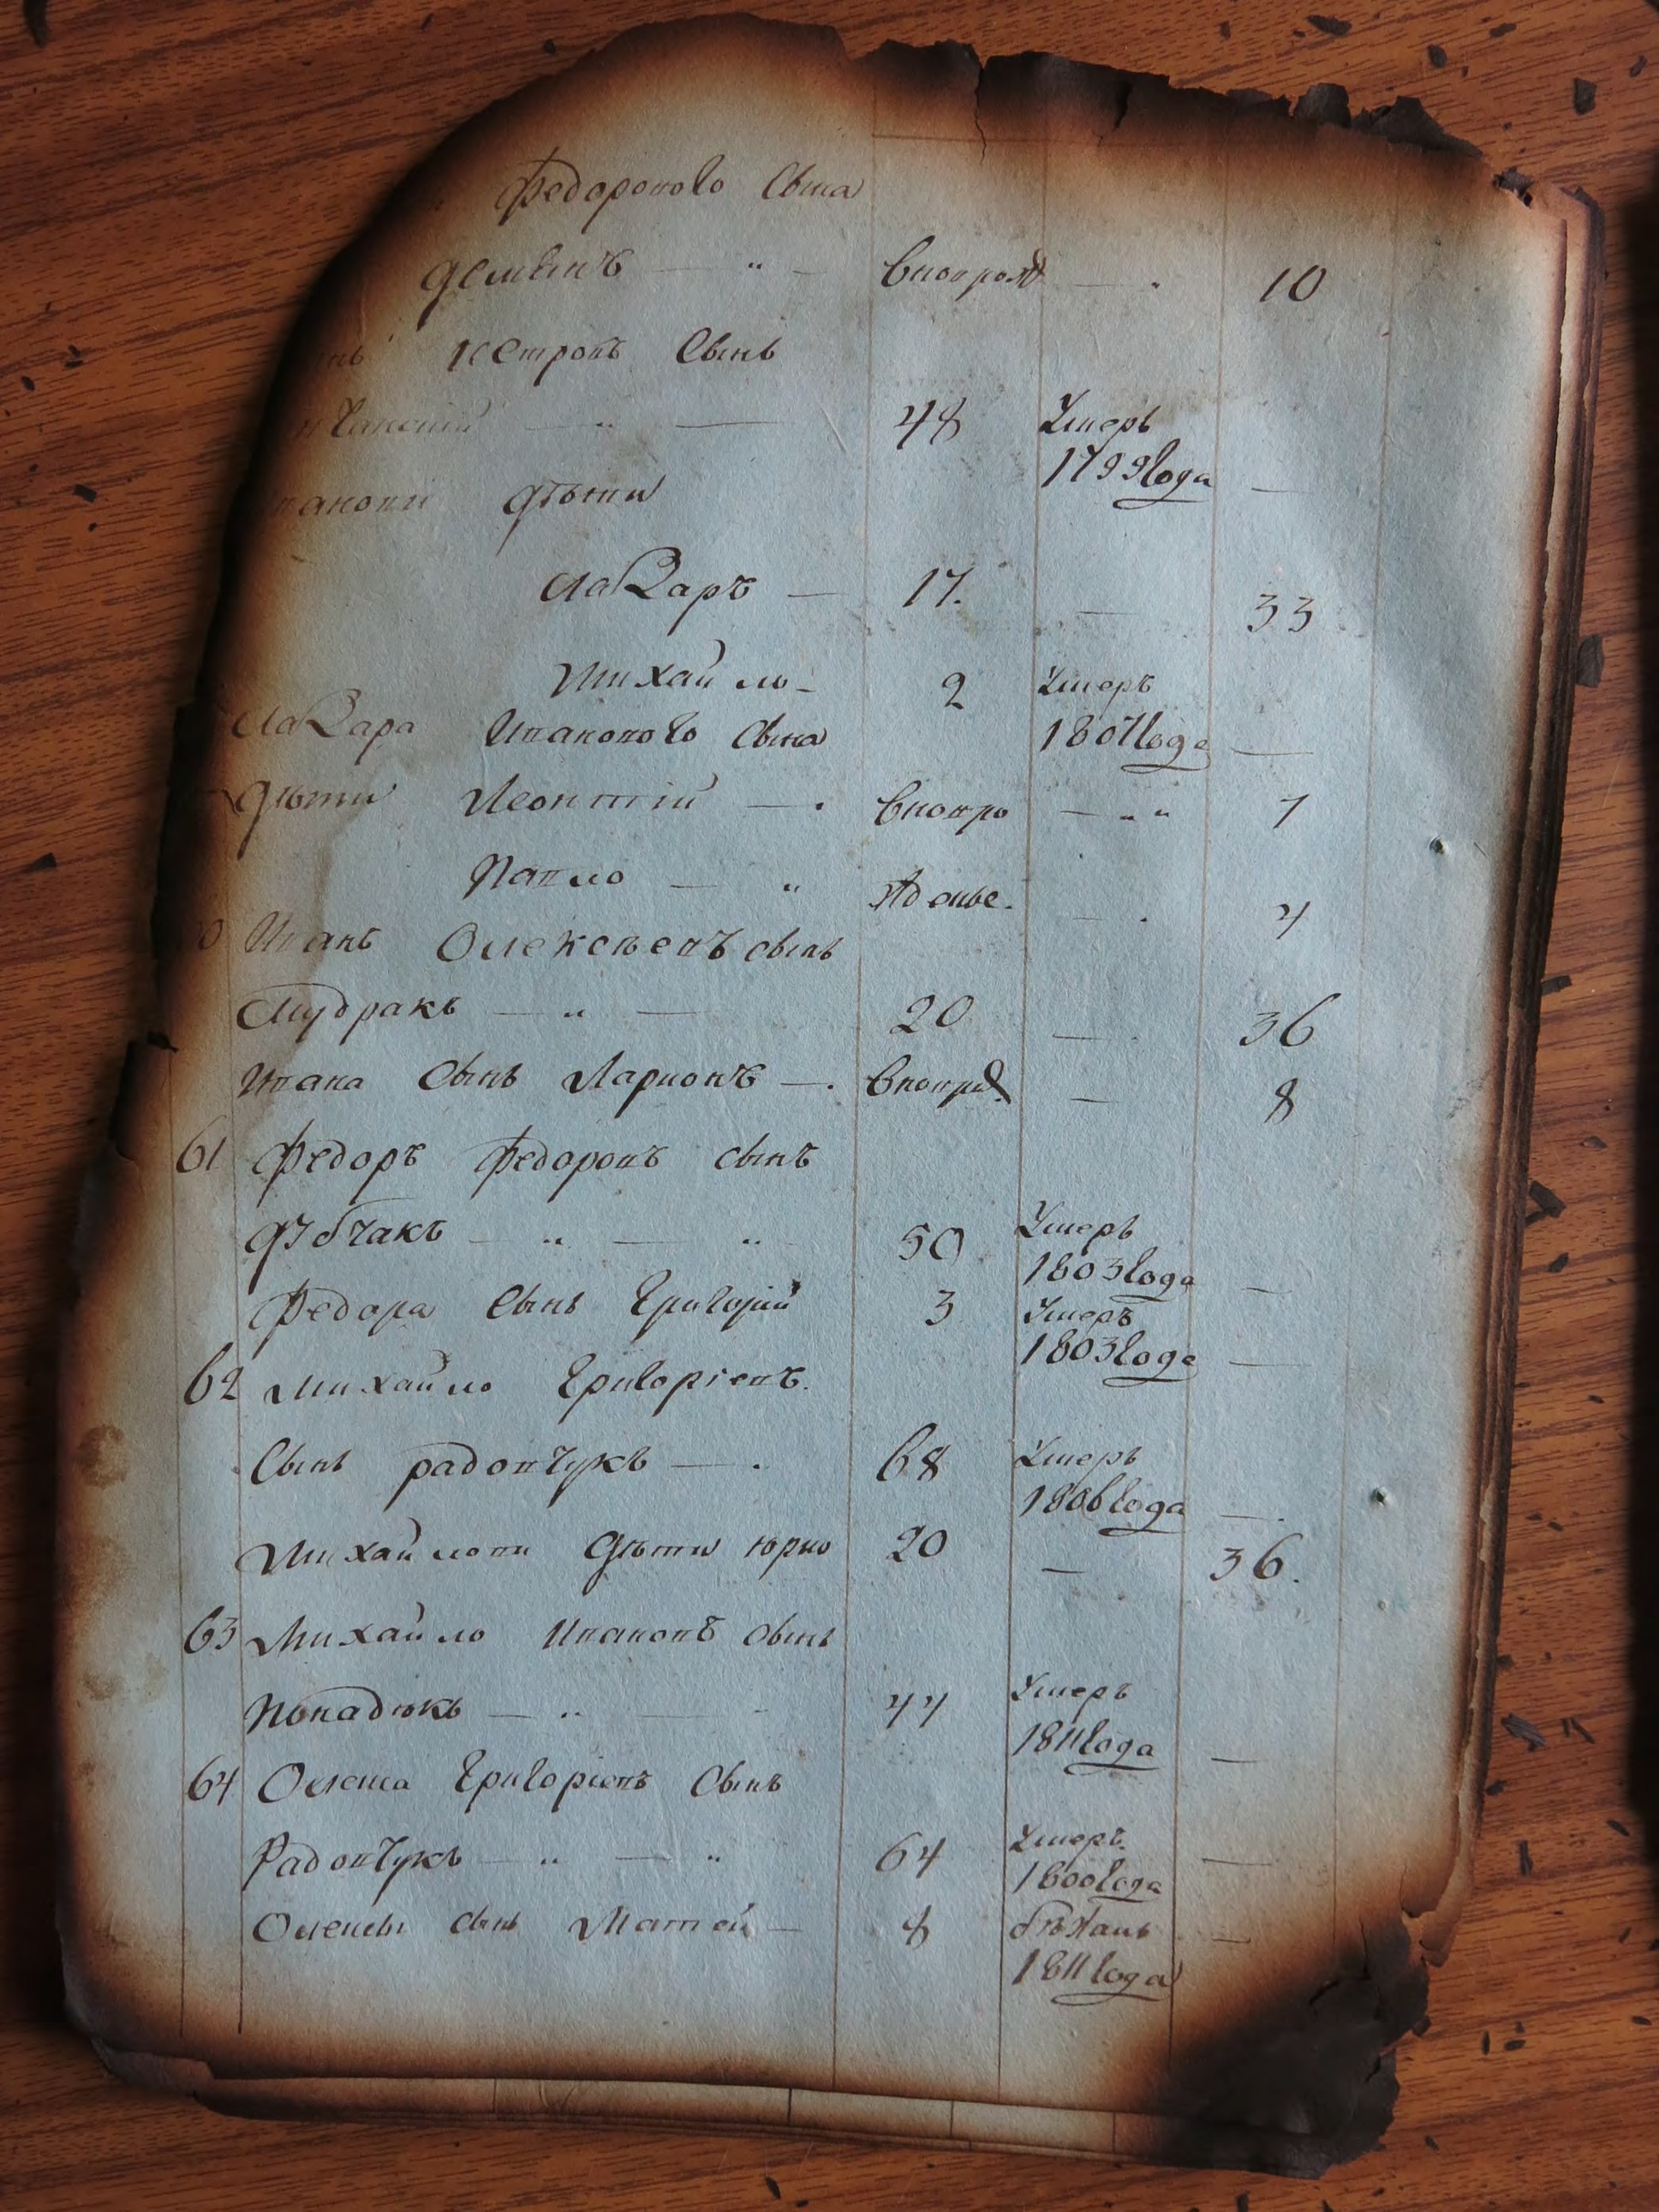 Федорового сына
Демьянъ — " — вноврожд — . 10
Петровъ сынъ
— " — 48 Умеръ
1799 года —
Ивановы дѣти
Лазаръ — 17. — 33
Михайло - 2 Умеръ
Лазара Иванового сына 1807 года —
дѣти Леонтій — . вновро — " " 7
Павло — " жденые. — . 4
60 Иванъ Олексѣевъ сынъ
Мудракъ — " — 20 — . 36
Ивана сынъ Ларионъ — . вноврж. — 8
61 Федоръ Федоровъ сынъ
— " — " 50 Умеръ
1803 года —
Федора сынъ Григорий 3 Умеръ
1803 года —
62 Михайло Григориевъ.
сынъ радовчукъ — . 68 Умеръ
1806 года — .
Михайловы дѣти юрко 20 — 36.
63 Михайло Ивановъ сынъ
44 Умеръ
1811 года —
64 Олекса Григориевъ сынъ
Радовчукъ — " — " 64 Умеръ. —
1800 года
Олексы сынъ Матвей — 8 бѣжалъ —
1811 года